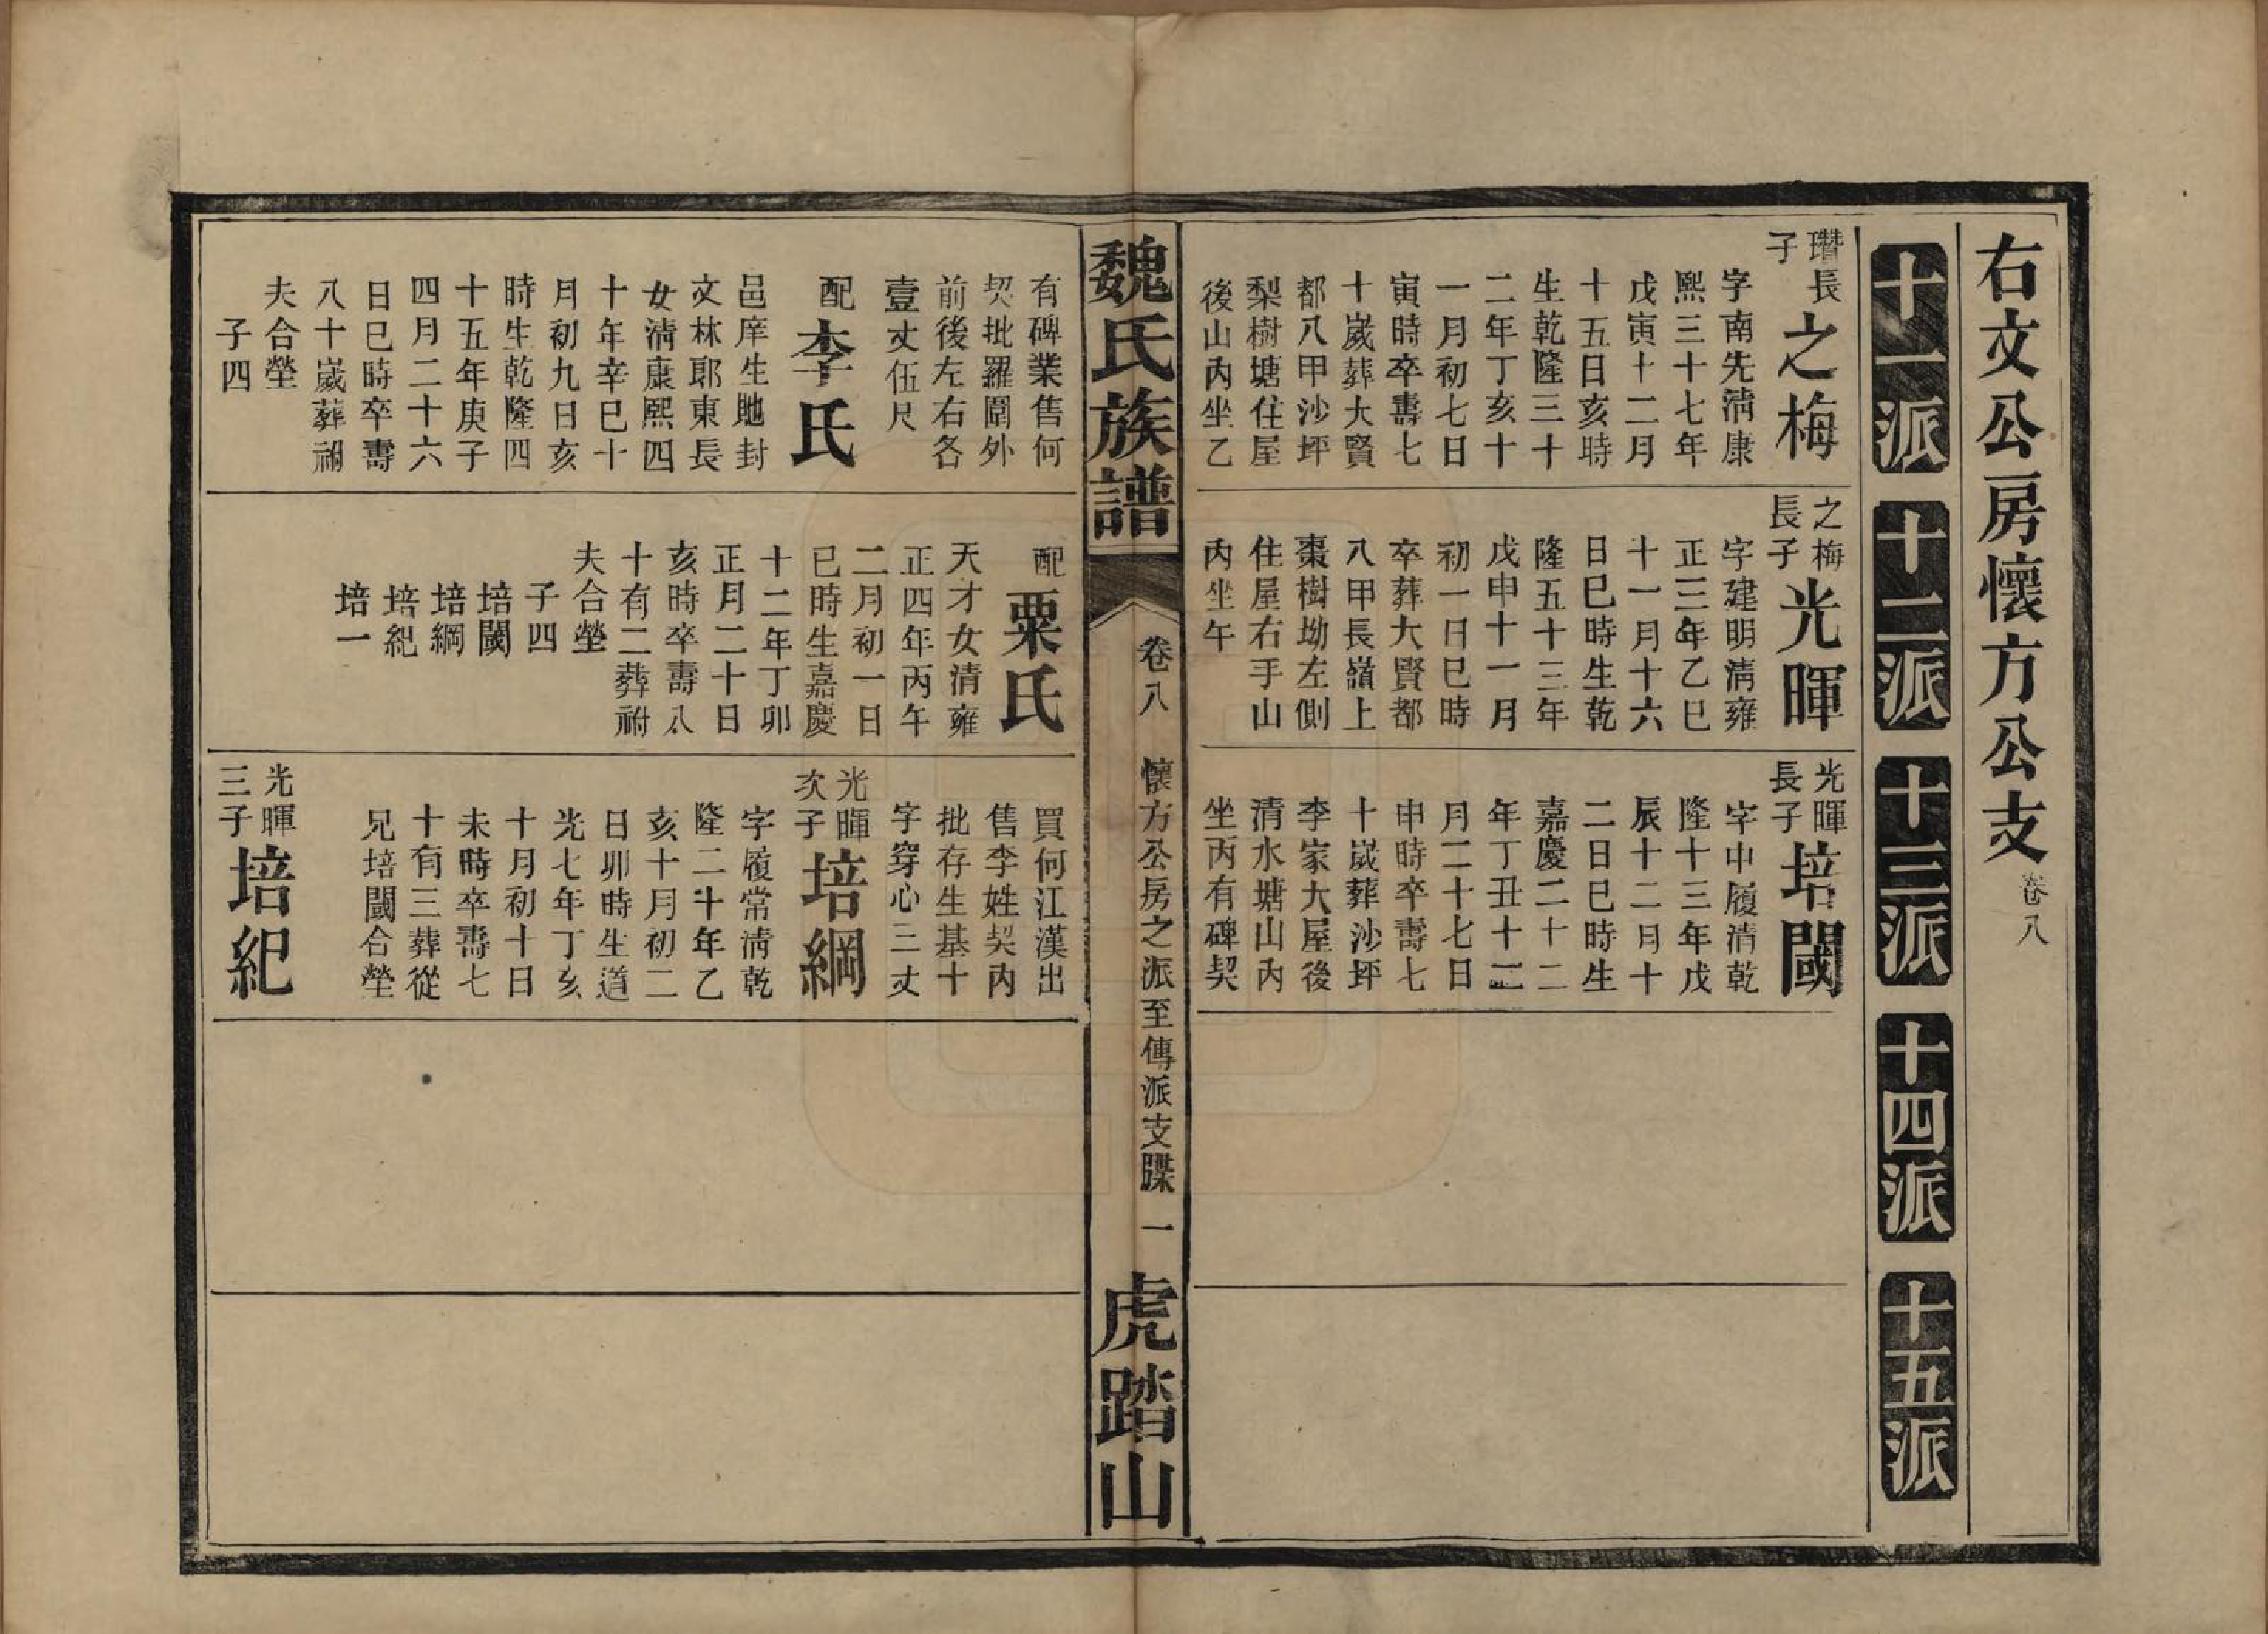 右文公房懷方公支 卷八
十一派
十二派
十三派
十四派
十五派
瓚長
子
之梅
字南先清康
熙三十七年
戊寅十二月
十五日亥時
生乾隆三十
二年丁亥十
一月初七日
寅時卒壽七
十歲葬大賢
都八甲沙坪
梨樹塘住屋
後山內坐乙
之梅
長子
光暉
字建明清雍
正三年乙巳
十一月十六
日巳時生乾
隆五十三年
戊申十一月
初一日巳時
卒葬大賢都
八甲長嶺上
棗樹坳左側
住屋右手山
內坐午
光暉
長子
培閾
字中履清乾
隆十三年戊
辰十二月十
二日巳時生
嘉慶二十二
年丁丑十二
月二十七日
申時卒壽七
十歲葬沙坪
李家大屋後
清水塘山內
坐丙有碑契
魏氏族譜
卷八
懷方公房之派至傳派支牒
一
虎踏山
有碑業售何
契批羅圍外
前後左右各
壹丈伍尺
配
李氏
邑庠生貤封
文林郎東長
女清康熙四
十年辛巳十
月初九日亥
時生乾隆四
十五年庚子
四月二十六
日巳時卒壽
八十歲葬祔
夫合塋
子四
配
粟氏
天才女清雍
正四年丙午
二月初一日
巳時生嘉慶
十二年丁卯
正月二十日
亥時卒壽八
十有二葬祔
夫合塋
子四
培閾
培綱
培紀
培一
買何江漢出
售李姓契內
批存生基十
字穿心三丈
光暉
次子
培綱
字履常清乾
隆二十年乙
亥十月初二
日卯時生道
光七年丁亥
十月初十日
未時卒壽七
十有三葬從
兄培閾合塋
光暉
三子
培紀